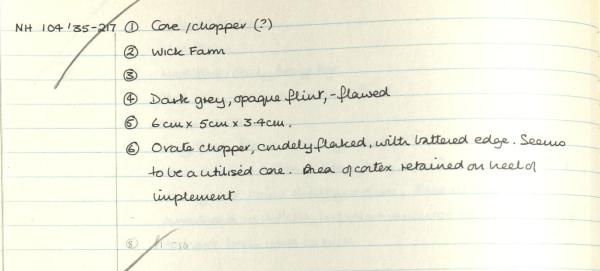 NH 104'35-217 ① Core/chopper (?)
② Wick Farm
③
④ Dark grey, opaque flint, - flawed
⑤ 6cm x 5cm x 3.4cm.
⑥ Ovate chopper, crudely flaked, with battered edge. Seems
to be a utilised core. Area of cortex retained on heel of
implement
⑧